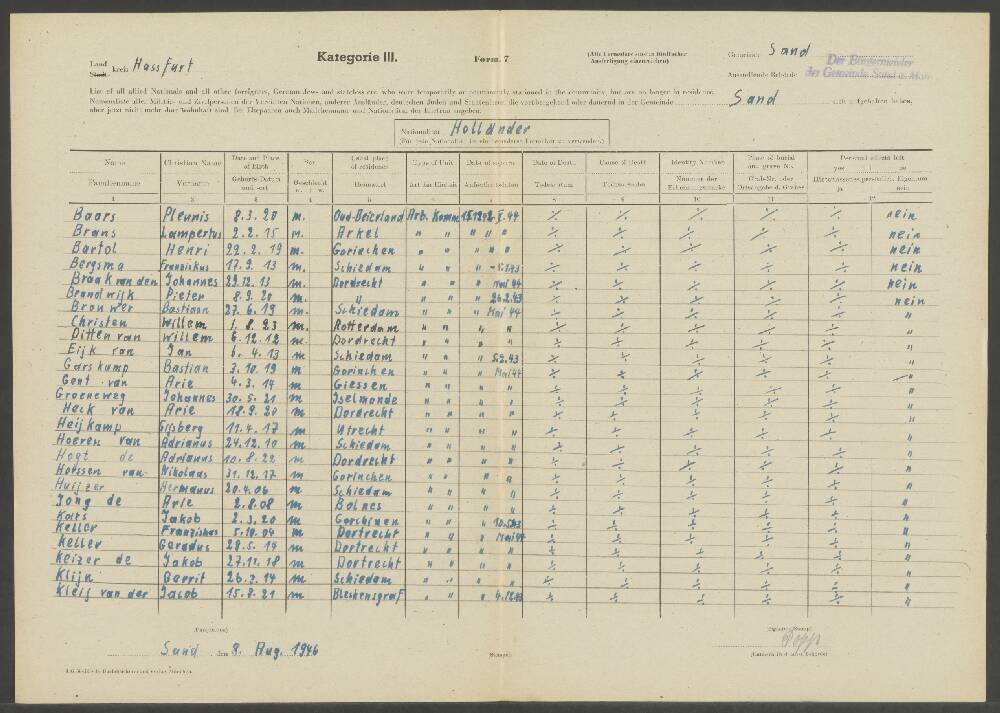 Land
Stadt- kreis Hassfurt
Kategorie III.
Form. 7
(Alle Formulare sind in fünffacher
Ausfertigung einzureichen)
Gemeinde Sand
Ausstellende Behörde Der Bürgermeister
der Gemeinde Sand a. Main
List of all allied Nationals and all other foreigners, German Jews and stateless etc. who were temporarily or permanently stationed in the community, but are no longer in residence.
Namensliste aller Militär- und Zivilpersonen der Vereinten Nationen, anderer Ausländer, deutschen Juden und Staatenlosen, die vorübergehend oder dauernd in der Gemeinde Sand sich aufgehalten haben,
aber jetzt nicht mehr dort wohnhaft sind. Bei Ehepaaren auch Mädchenname und Nationalität der Ehefrau angeben.
Nationalität Holländer
(Für jede Nationalität ist ein besonderes Formular zu verwenden)
Name Christian Name Date and Place of Birth Sex Usual place of residence Type of Unit Date of sojourn Date of Death Cause of Death Identity Number Place of burial and grave No. Personal effects left yes no
Familienname Vorname Geburts-Datum und -ort Geschlecht m. w. Heimatort Art der Einheit Aufenthaltsdaten Todesdatum Todesursache Nummer der Erkennungsmarke Grabstelle oder Ortsangabe d. Grabes Hinterlassenes persönlich. Eigentum ja nein
1 2 3 4 5 6 7 8 9 10 11 12
Baars Pleunis 8.3.20 m. Oud-Beierland Arb. Komm. ÷ ÷ ÷ ÷ ÷ nein
Brans Lampertus 2.2.15 m. Arkel " " " " ÷ ÷ ÷ ÷ ÷ nein
Bartol Henri 22.2.19 m. Gorinchen " " " " ÷ ÷ ÷ ÷ ÷ nein
Bergsma Franziskus 17.9.13 m. Schiedam " " " ÷ ÷ ÷ ÷ ÷ nein
Braak van den Johannes 29.12.13 m. Dordrecht " " " Mai 44 ÷ ÷ ÷ ÷ ÷ nein
Brandwijk Pieter 8.9.20 m. " " " " 26.2.43 ÷ ÷ ÷ ÷ ÷ nein
Brouwer Bastiaan 27.6.19 m. Schiedam " " " Mai 44 ÷ ÷ ÷ ÷ ÷ "
Christen Willem 1.8.23 m. Rotterdam " " " " ÷ ÷ ÷ ÷ ÷ "
Ditten van Willem 6.12.12 m. Dordrecht " " " " ÷ ÷ ÷ ÷ ÷ "
Eijk van Jan 6.4.13 m Schiedam " " " 5.2.43 ÷ ÷ ÷ ÷ ÷ "
Garskamp Bastian 3.10.19 m Gorinchen " " " Mai 44 ÷ ÷ ÷ ÷ ÷ "
Gent van Arie 4.3.14 m Giessen " " " " ÷ ÷ ÷ ÷ ÷ "
Groeneweg Johannes 30.5.21 m Iselmonde " " " " ÷ ÷ ÷ ÷ ÷ "
Heck van Arie 18.9.20 m Dordrecht " " " " ÷ ÷ ÷ ÷ ÷ "
Heijkamp Gijsberg 11.4.17 m Utrecht " " " " ÷ ÷ ÷ ÷ ÷ "
Hoeren van Adrianus 24.12.10 m Schiedam " " " " ÷ ÷ ÷ ÷ ÷ "
Hogt de Adrianus 10.8.22 m Dordrecht " " " " ÷ ÷ ÷ ÷ ÷ "
Horssen van Nikolaas 31.12.17 m Gorinchen " " " " ÷ ÷ ÷ ÷ ÷ "
Huijzer Hermanus 20.4.06 m Schiedam " " " " ÷ ÷ ÷ ÷ ÷ "
Jong de Arie 2.8.08 m Bolnes " " " " ÷ ÷ ÷ ÷ ÷ "
Kars Jakob 2.3.20 m Gorchinen " " " ÷ ÷ ÷ ÷ ÷ "
Keller Franziskus 5.10.04 m Dortrecht " " " Mai 44 ÷ ÷ ÷ ÷ ÷ "
Keller Geradus 28.5.14 m Dortrecht " " " " ÷ ÷ ÷ ÷ ÷ "
Keizer de Jakob 27.11.18 m Dortrecht " " " " ÷ ÷ ÷ ÷ ÷ "
Klijn Gerrit 26.3.14 m Schiedam " " " " ÷ ÷ ÷ ÷ ÷ "
Kleij van der Jacob 15.8.21 m Bleskensgraf " " " ÷ ÷ ÷ ÷ ÷ "
Sand, den 8. Aug. 1946
(Stempel)
Popp